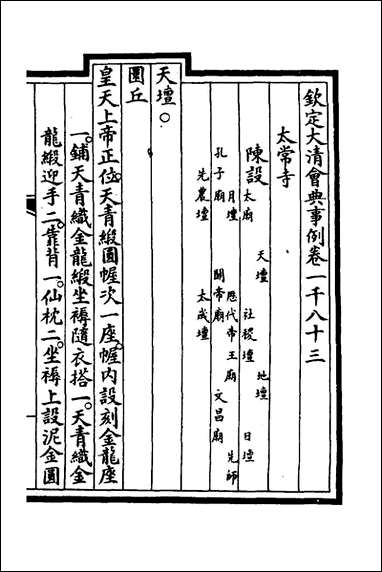 欽定大清會典事例卷一千八十三
太常寺
陳設 天壇 地壇
太廟 社稷壇 日壇
月壇 歷代帝王廟 先師
孔子廟 關帝廟 文昌廟
先農壇 太歲壇
天壇○
圜丘
皇天上帝正位。天青緞圓幄次一座。幄內設刻金龍座
一。鋪天青織金龍緞坐褥隨衣搭一。天青織金
龍緞迎手二。靠背一。仙枕二。坐褥上設泥金圓